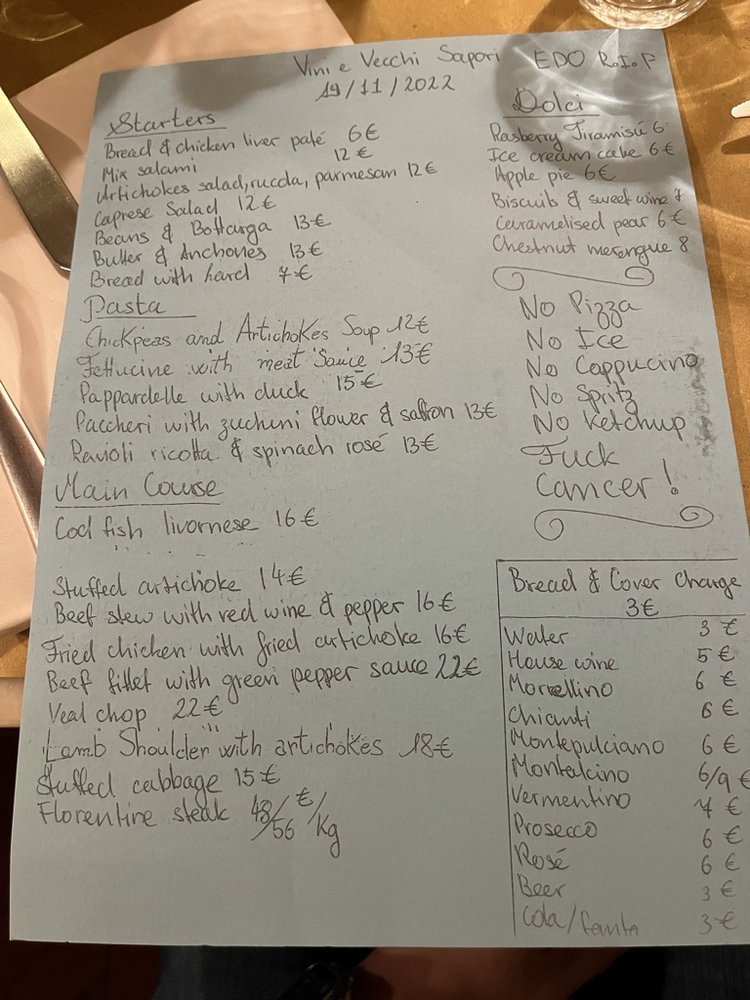 Vini e Vecchi Sapori EDO R.I.P
19/11/2022
Starters
Bread & chicken liver paté 6€
Mix salami 12€
Artichokes salad, rucola, parmesan 12€
Caprese Salad 12€
Beans & Bottarga 13€
Butter & Anchovies 13€
Bread with lard 7€
Pasta
Chickpeas and Artichokes Soup 12€
Fettucine with meat sauce 13€
Pappardelle with duck 15€
Paccheri with zucchini flower & saffron 13€
Ravioli ricotta & spinach rosé 13€
Main Course
Cod fish livornese 16€
Stuffed artichoke 14€
Beef stew with red wine & pepper 16€
Fried chicken with fried artichoke 16€
Beef fillet with green pepper sauce 22€
Veal chop 22€
Lamb Shoulder with artichokes 18€
Stuffed cabbage 15€
Florentine steak 48/56 €/Kg
Dolci
Rasberry Tiramisú 6
Ice cream cake 6€
Apple pie 6€
Biscuits & sweet wine 7
Caramelised pear 6€
Chestnut merengue 8
No Pizza
No Ice
No Cappucino
No Spritz
No Ketchup
Fuck
Cancer!
Bread & Cover Charge
3€
Water 3€
House wine 5€
Morellino 6€
Chianti 6€
Montepulciano 6€
Montalcino 6/9€
Vermentino 7€
Prosecco 6€
Rosé 6€
Beer 3€
Cola/fanta 3€